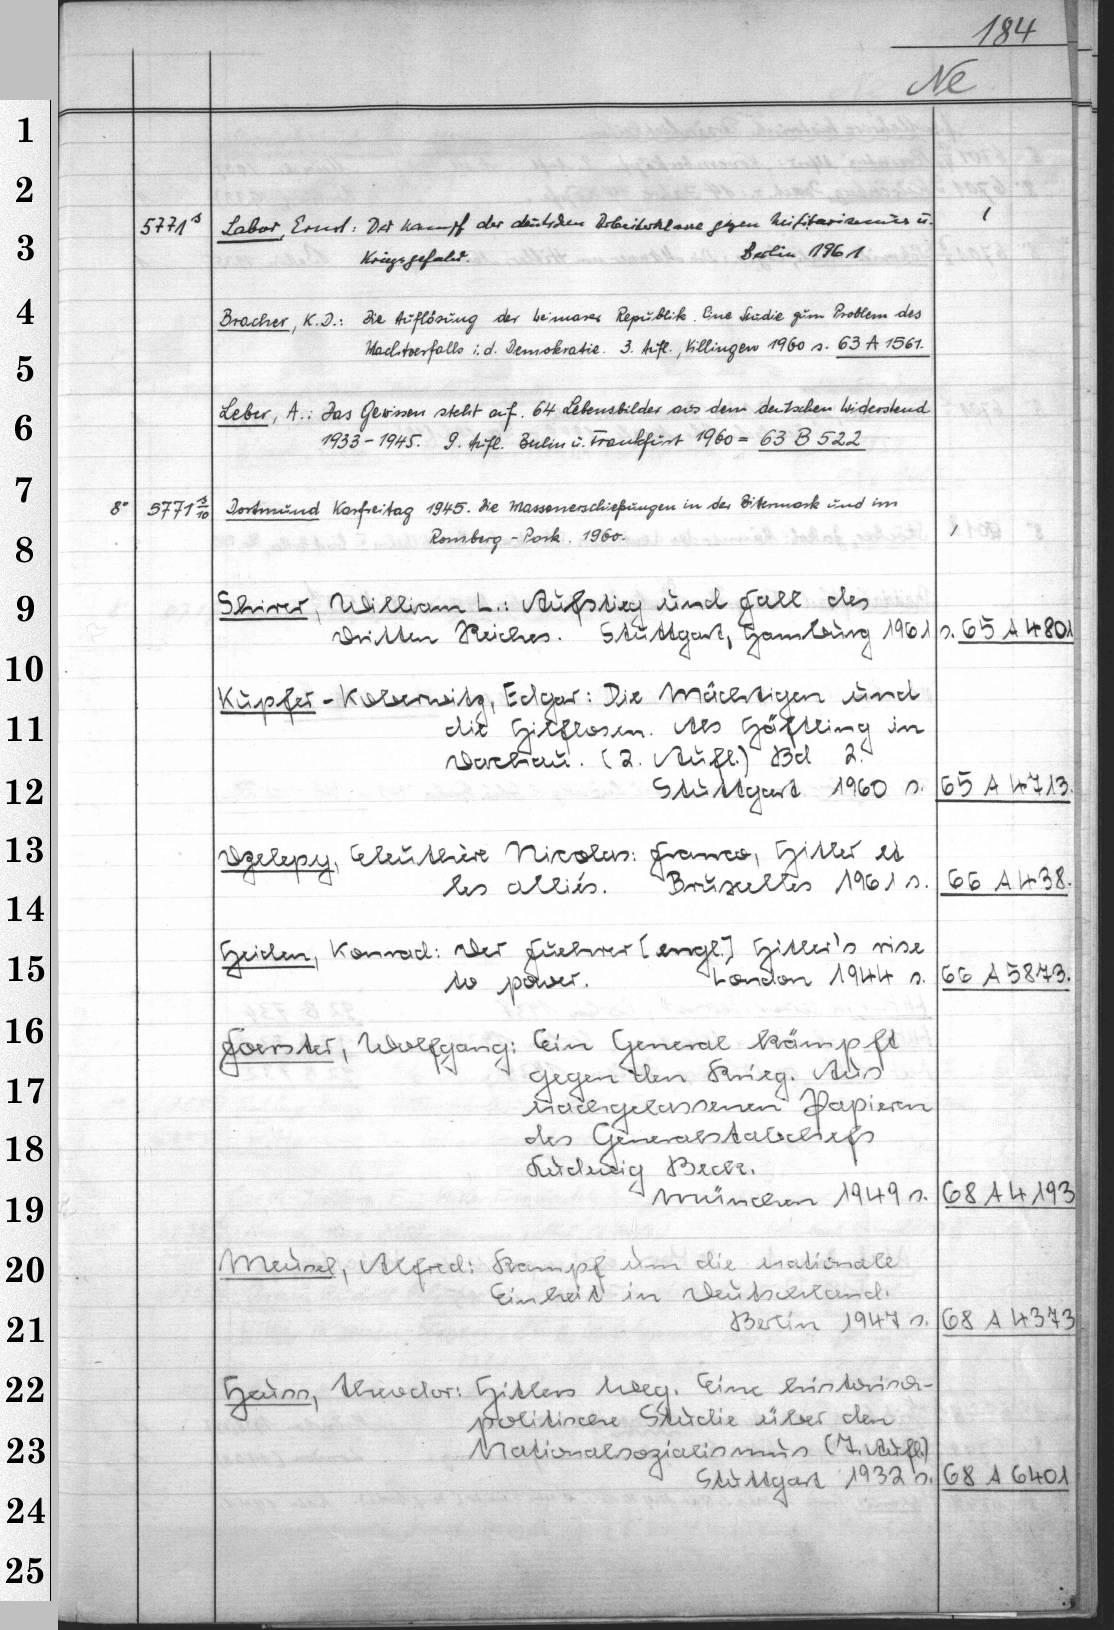 184
Ne
5771 s Labor, Ernst: Der Kampf der deutschen Arbeiterklasse gegen Militarismus u. 1
Kriegsgefahr. Berlin 1961
Bracher, K.D.: Die Auflösung der Weimarer Republik. Eine Studie zum Problem des
Machtverfalls i.d. Demokratie. 3. Aufl., Villingen 1960 s. 63 A 1561.
Leber, A.: Das Gewissen steht auf. 64 Lebensbilder aus dem deutschen Widerstand
1933-1945. 9. Aufl. Berlin u. Frankfurt 1960 = 63 B 522
8° 5771 s/10 Dortmund Karfreitag 1945. Die Massenerschießungen in der Bitermark und im
Romberg-Park. 1960. 1
Shirer, William L.: Aufstieg und Fall des
Dritten Reiches. Stuttgart, Hamburg 1961 s. 65 A 4801
Kupfer-Koberwitz, Edgar: Die Mächtigen und
die Hilflosen. Als Häftling in
Dachau. (2. Aufl.) Bd 2.
Stuttgart 1960 s. 65 A 4713.
Dzelepy, Eleuthère Nicolas: Franco, Hitler et
les alliés. Bruxelles 1961 s. 66 A 438.
Heiden, Konrad: Der Fuehrer [engl.] Hitler's rise
to power. London 1944 s. 66 A 5873.
Foerster, Wolfgang: Ein General kämpft
gegen den Krieg. Aus
nachgelassenen Papieren
des Generalstabchefs
Ludwig Beck.
München 1949 s. 68 A 4193
Meusel, Alfred: Kampf um die nationale
Einheit in Deutschland.
Berlin 1947 s. 68 A 4373
Heuss, Theodor: Hitlers Weg. Eine historisch-
politische Studie über den
Nationalsozialismus (7. Aufl.)
Stuttgart 1932 s. 68 A 6401
1
2
3
4
5
6
7
8
9
10
11
12
13
14
15
16
17
18
19
20
21
22
23
24
25